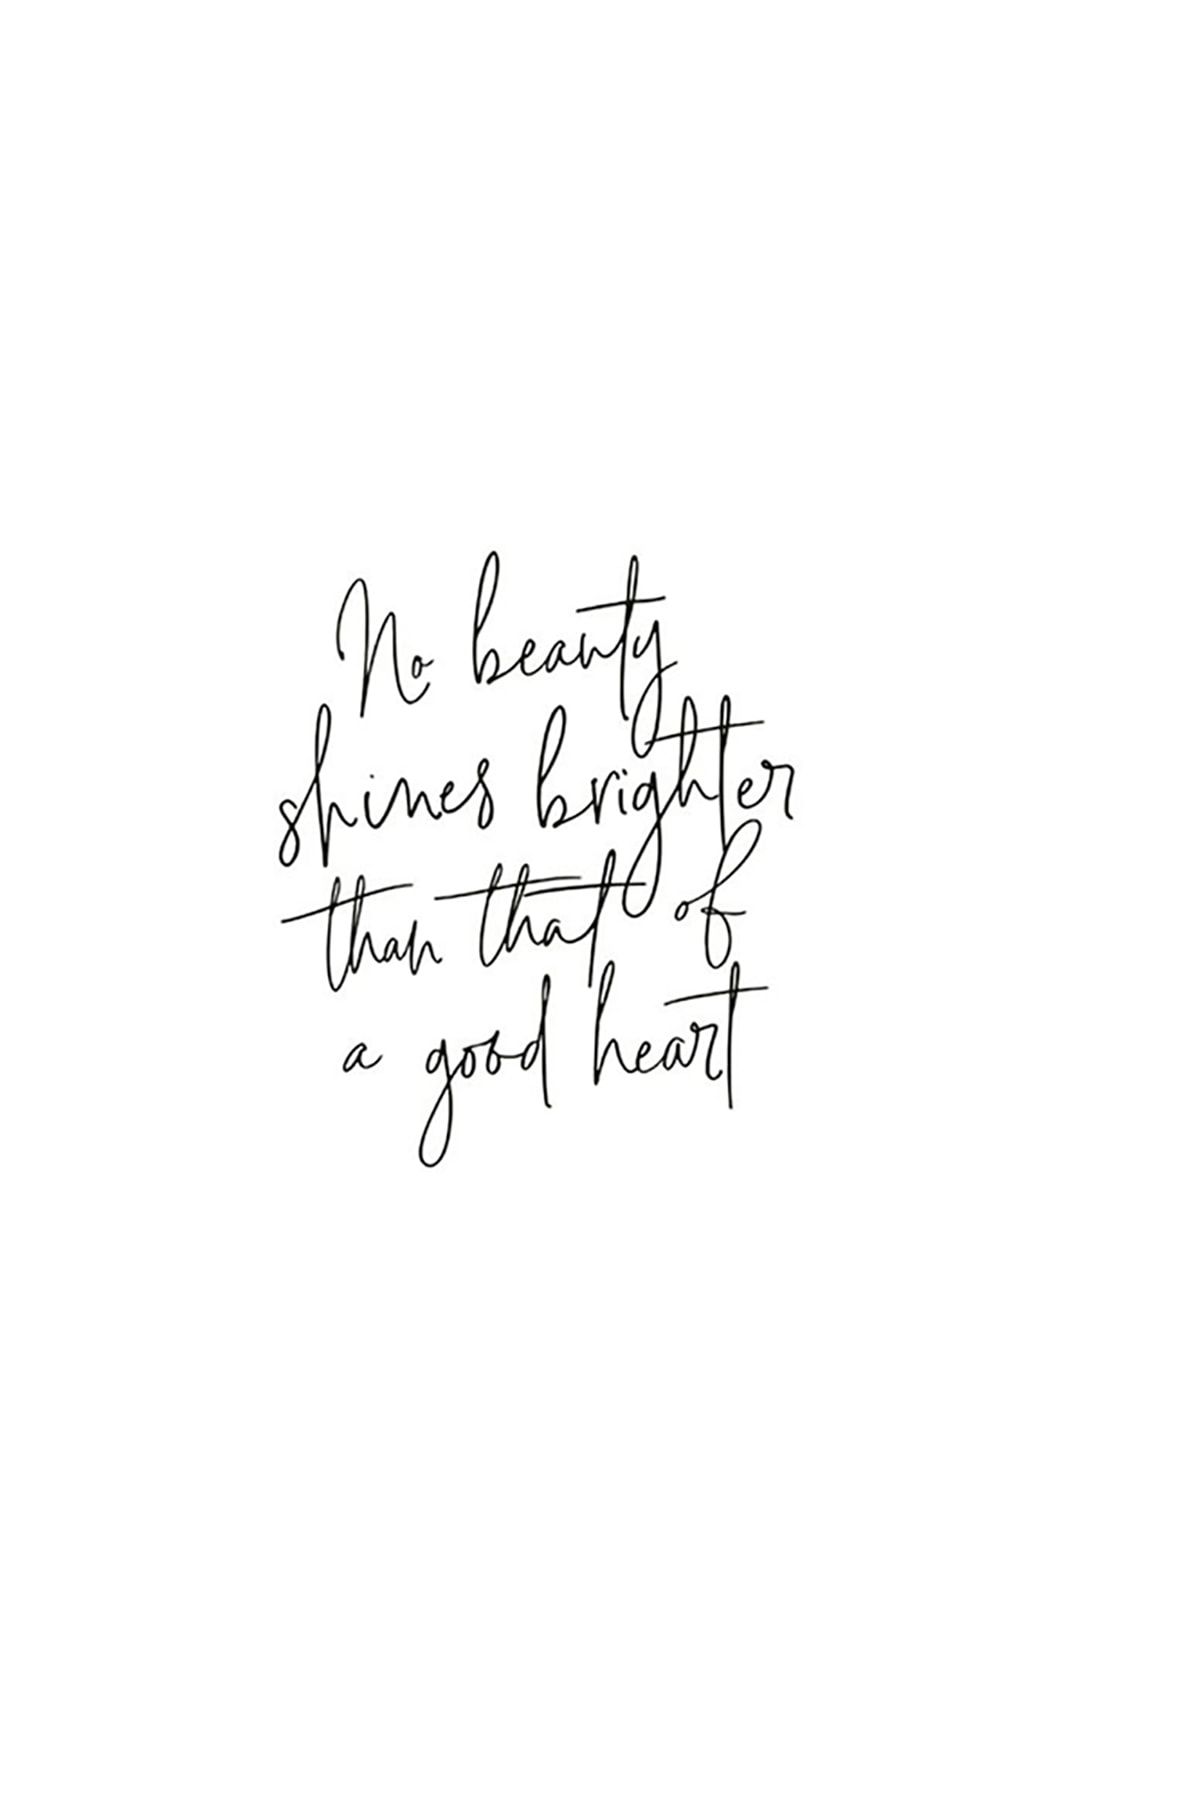 No beauty
shines brighter
than that of
a good heart